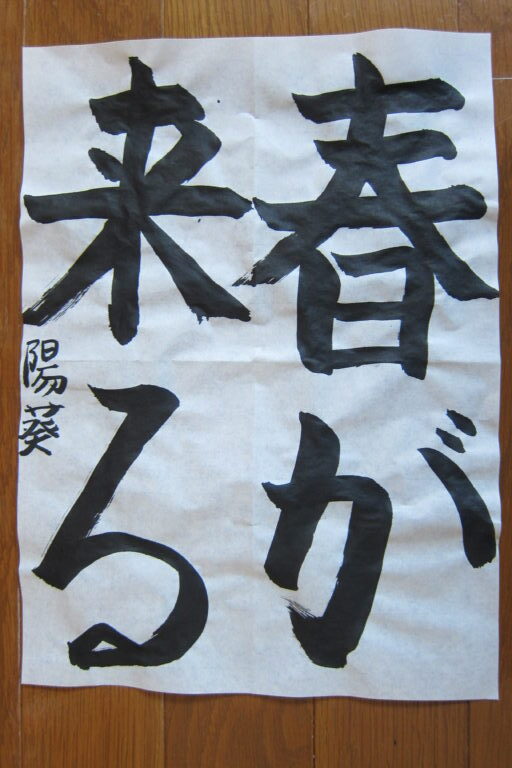 春が
来る
陽葵